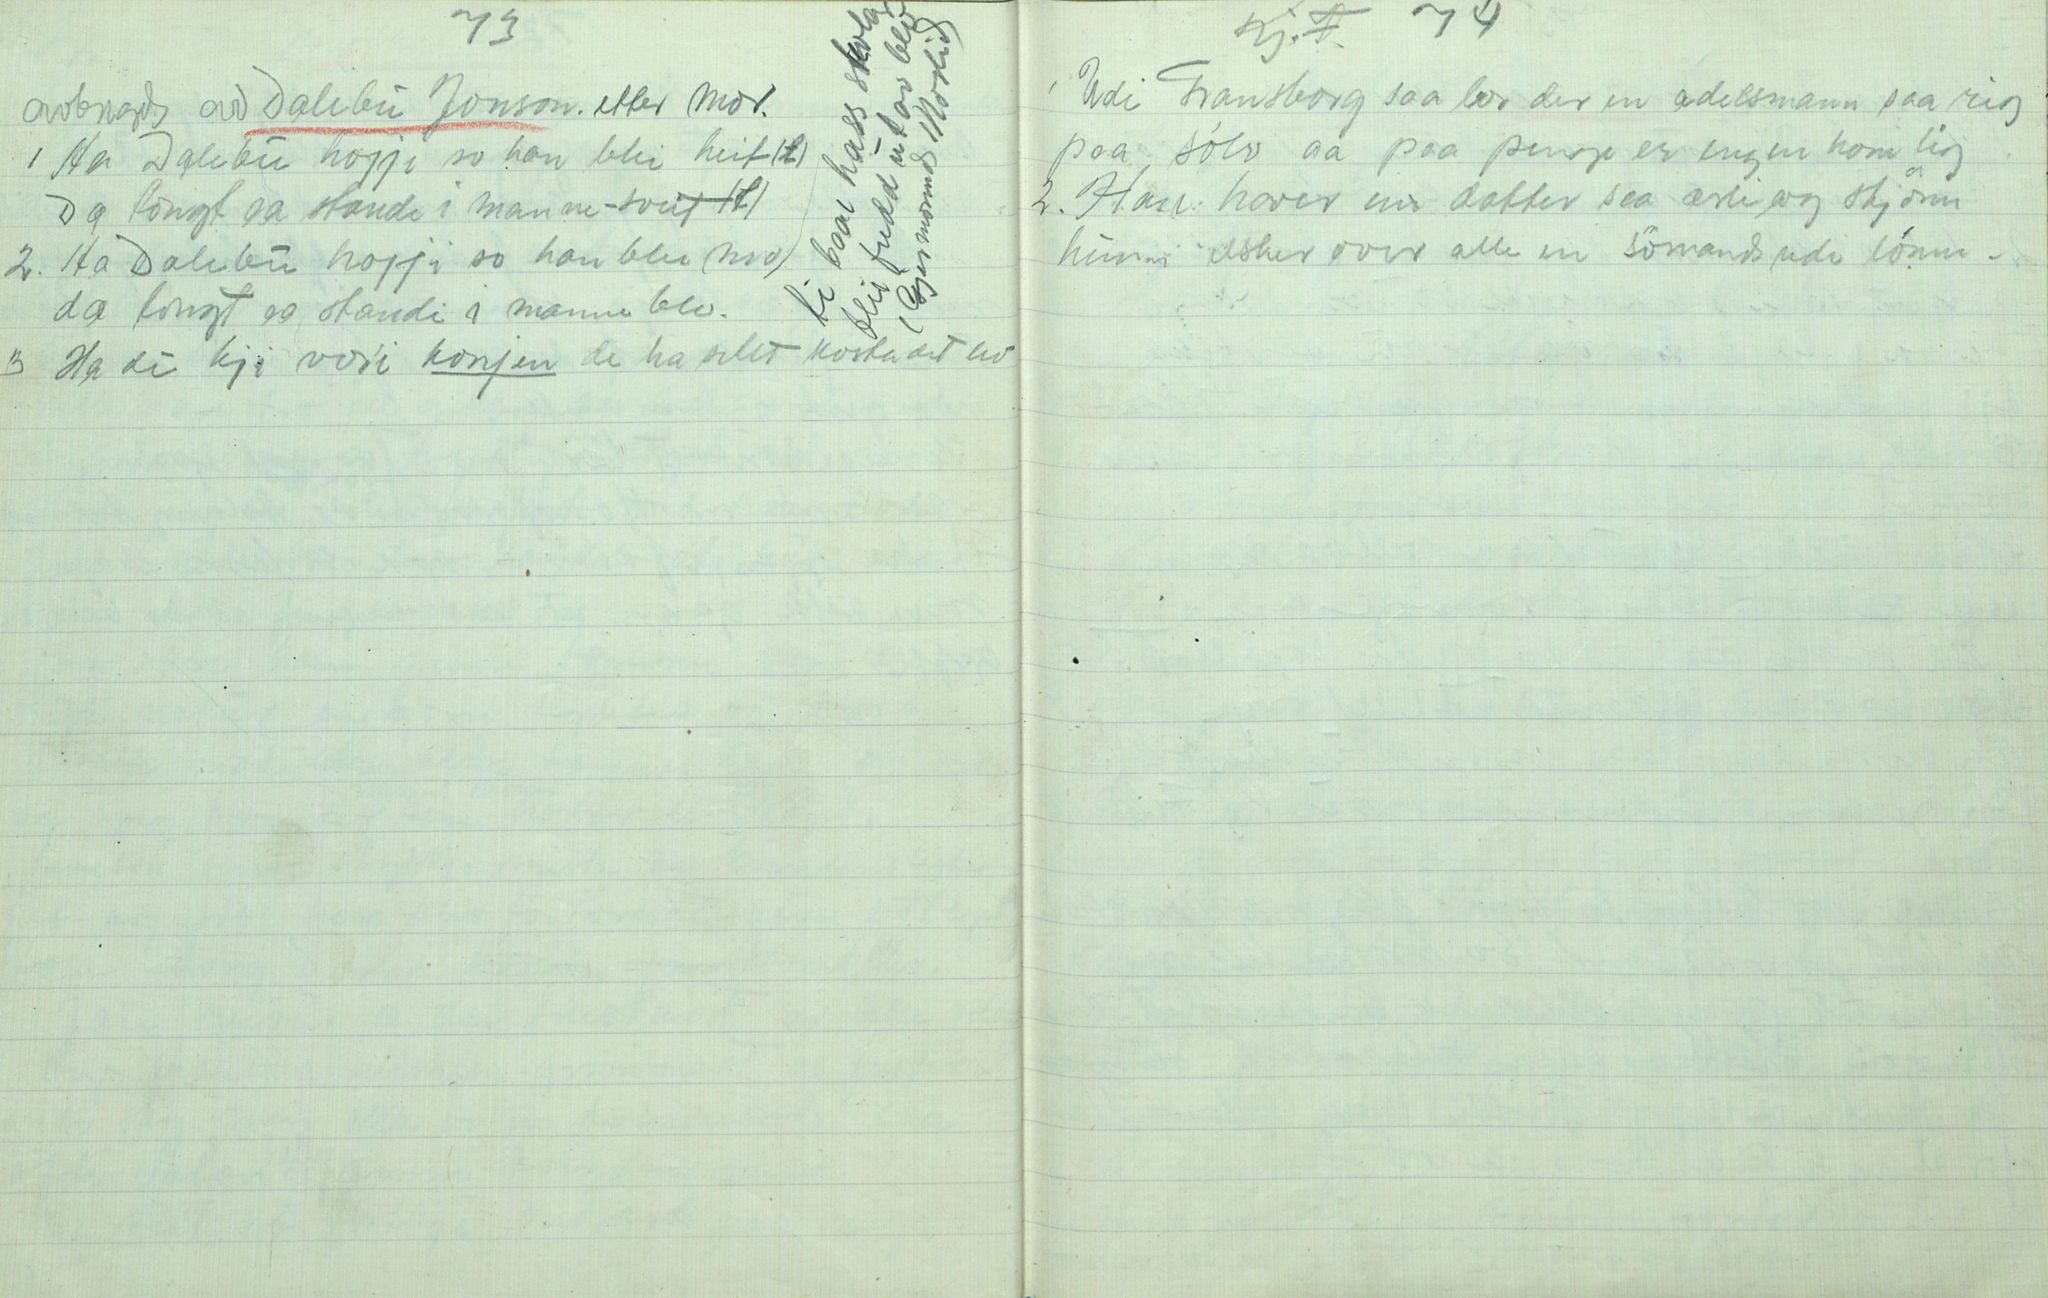 73
avbragds av Dalebü Jonson. etter mor.
1 Ha Dalebü hoppi so han blei heit (t)
Da tongt aa stande i manne-sveit (t)
2. Ha Dalebü hoppi so han blei mo)
da tongt aa standi i manne blo.
3 Ha di kji vori konjen de ha selt kosta det liv
di baar hass skola
blei bredd utav blod
(Gjermunds Morlid)
74
1 Udi Fransborg saa bor der en adelsmann saa rig
paa sölv aa paa penge er engen hom lig
2. Han haver en datter saa ærlig og skjönn
hünn elsker over alle en sömands udi lönn -